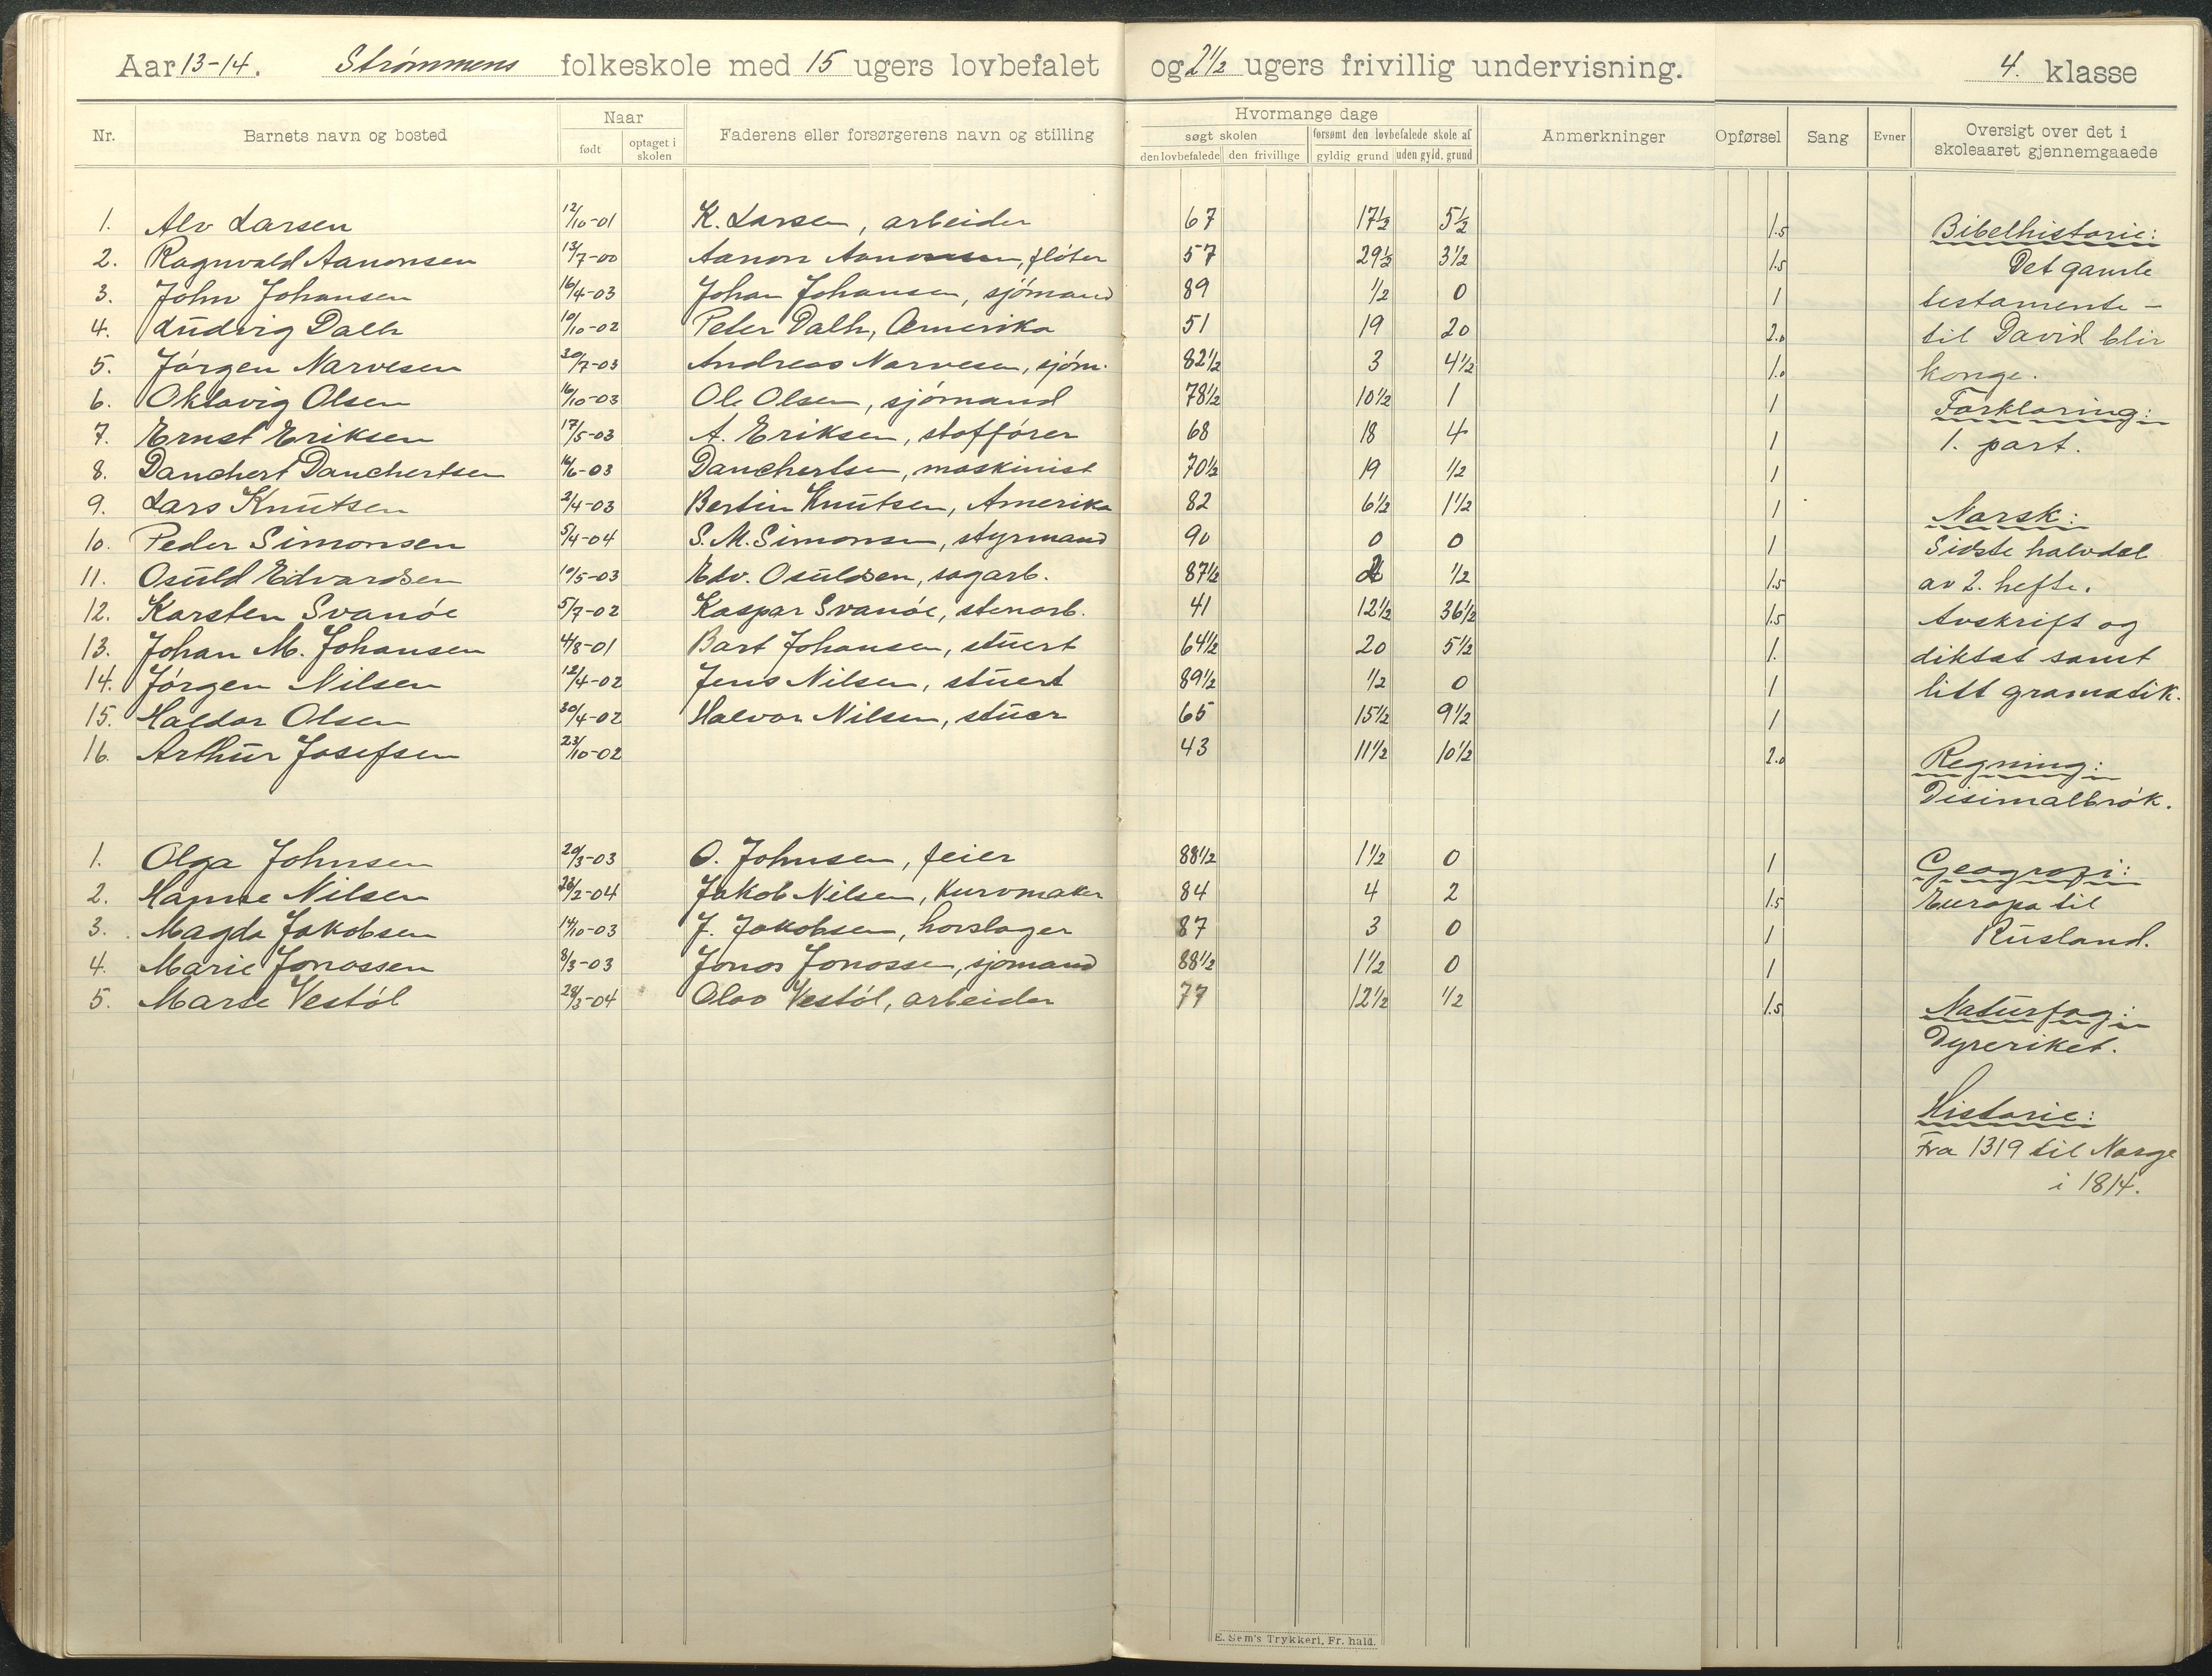 Aar 13-14. Strømmens folkeskole med 15 ugers lovbefalet og 2 1/2 ugers frivillig undervisning. 4. klasse
Nr. Barnets navn og bosted Naar født optaget i skolen Faderens eller forsørgerens navn og stilling Hvormange dage søgt skolen den lovbefalede den frivillige forsømt den lovbefalede skole af gyldig grund uden gyld. grund Anmerkninger Opførsel Sang Evner Oversigt over det i skoleaaret gjennemgaaede
1. Alv Larsen 12/10-01 K. Larsen, arbeider 67 17 1/2 5 1/2 1.5 Bibelhistorie:
2. Ragnvald Aanonsen 13/7-00 Aanon Aanonsen, fløter 57 29 1/2 3 1/2 1.5 Det gamle
3. John Johansen 16/4-03 Johan Johansen, sjømand 89 1/2 0 1 testamente -
4. Ludvig Dalh 10/10-02 Peter Dalh, Amerika 51 19 20 2.0 til David blir
5. Jørgen Narvesen 20/7-03 Andreas Narvesen, sjøm. 82 1/2 3 4 1/2 1.0 konge.
6. Oktavig Olsen 16/10-03 Ole Olsen, sjømand 78 1/2 10 1/2 1 1 Forklaring:
7. Ernst Eriksen 17/5-03 A. Eriksen, stoffører 68 18 4 1 1. part.
8. Danchert Danchertsen 16/6-03 Danchertsen, maskinist 70 1/2 19 1/2 1
9. Lars Knutsen 2/4-03 Bertin Knutsen, Amerika 82 6 1/2 1 1/2 1 Norsk:
10. Peder Simonsen 5/4-04 S. M. Simonsen, styrmand 90 0 0 1 Sidste halvdel
11. Osuld Edvardsen 10/5-03 Edv. Osuldsen, sagarb. 87 1/2 2 1/2 1.5 av 2. hefte.
12. Karsten Svanøe 5/7-02 Kaspar Svanøe, stenarb. 41 12 1/2 36 1/2 1.5 Avskrift og
13. Johan M. Johansen 4/8-01 Bart Johansen, stuert 64 1/2 20 5 1/2 1. diktat samt
14. Jørgen Nilsen 12/4-02 Jens Nilsen, stuert 89 1/2 1/2 0 1 litt gramatik.
15. Haldor Olsen 30/4-02 Halvor Nilsen, stuer 65 15 1/2 9 1/2 1
16. Arthur Josefsen 23/10-02 43 11 1/2 10 1/2 2.0 Regning:
Disimalbrøk.
1. Olga Johnsen 20/3-03 O. Johnsen, feier 88 1/2 1 1/2 0 1 Geografi:
2. Hanne Nilsen /2-04 Jakob Nilsen, Kurvmaker 84 4 2 1.5 Europa til
3. Magda Jakobsen 14/10-03 J. Jakobsen, hovslager 87 3 0 1 Rusland.
4. Marie Jonassen 8/3-03 Jonas Jonassen, sjømand 88 1/2 1 1/2 0 1
5. Marte Vestøl 28/3-04 Olav Vestøl, arbeider 77 12 1/2 1/2 1.5 Naturfag:
Dyreriket.
Historie:
Fra 1319 til Norge
i 1814.
E. Sem's Trykkeri, Fr. hald.